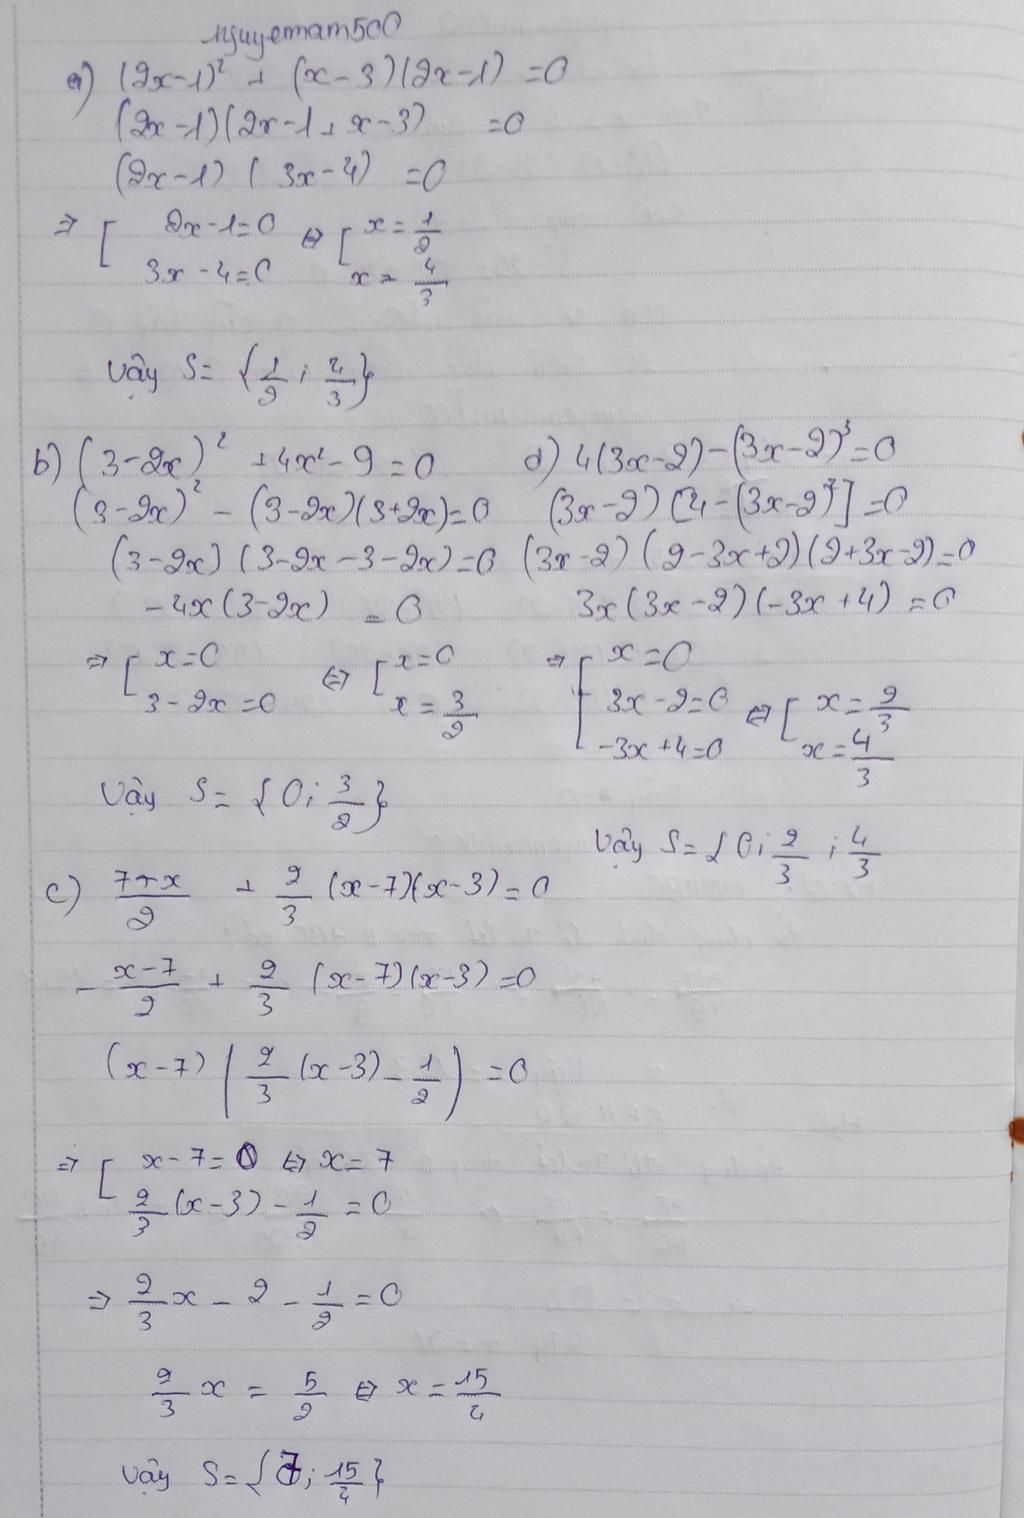 nguyetnam500
a) (2x-1)² + (x-3)(2x-1) = 0
(2x-1)(2x-1+x-3) = 0
(2x-1)(3x-4) = 0
⇒ [ 2x-1=0 ⇔ [ x = 1/2
3x-4=0 x = 4/3
Vậy S = {1/2 ; 4/3}
b) (3-2x)² + 4x² - 9 = 0
(3-2x)² - (3-2x)(3+2x) = 0
(3-2x)(3-2x-3-2x) = 0
-4x(3-2x) = 0
⇒ [ x=0 ⇔ [ x=0
3-2x=0 x = 3/2
Vậy S = {0; 3/2}
d) 4(3x-2) - (3x-2)³ = 0
(3x-2)[4-(3x-2)²] = 0
(3x-2)(2-3x+2)(2+3x-2) = 0
3x(3x-2)(-3x+4) = 0
⇒ [ x=0
3x-2=0 ⇔ [ x = 2/3
-3x+4=0 x = 4/3
Vậy S = { 0; 2/3 ; 4/3
c) 7-x/2 + 2/3 (x-7)(x-3) = 0
- x-7/2 + 2/3 (x-7)(x-3) = 0
(x-7) ( 2/3 (x-3) - 1/2 ) = 0
⇒ [ x-7=0 ⇔ x=7
2/3 (x-3) - 1/2 = 0
⇒ 2/3 x - 2 - 1/2 = 0
2/3 x = 5/2 ⇔ x = 15/4
Vậy S = {7; 15/4}